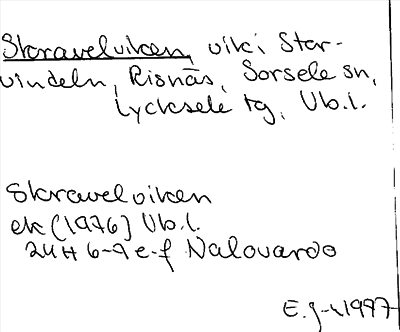 Skravelviken, vik i Stor-
vindeln, Risnäs, Sorsele sn,
Lycksele tg, Vb.l.
Skravelviken
ek (1976) Vb.l.
24H 6-7 e-f Nalovardo
E.g-n 1997